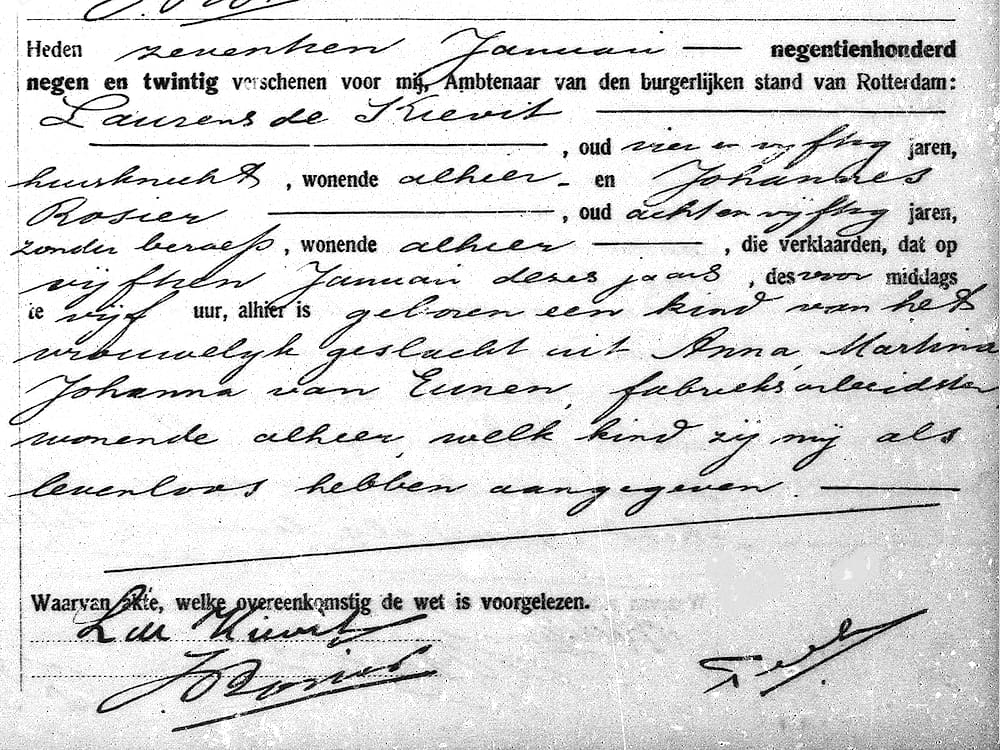 Heden zeventien Januari — negentienhonderd
negen en twintig verschenen voor mij, Ambtenaar van den burgerlijken stand van Rotterdam:
Laurens de Kievit —
— , oud vier en vijftig jaren,
huisknecht , wonende alhier - en Johannes
Rosier — , oud acht en vijftig jaren,
zonder beroep , wonende alhier — , die verklaarden, dat op
vijftien Januari dezes jaars , des voor middags
te vijf uur, alhier is geboren een kind van het
vrouwelijk geslacht uit Anna Martina
Johanna van Eunen, fabrieksarbeidster
wonende alhier, welk kind zij mij als
levenloos hebben aangegeven. —
Waarvan akte, welke overeenkomstig de wet is voorgelezen.
L de Kievit
J Rosier